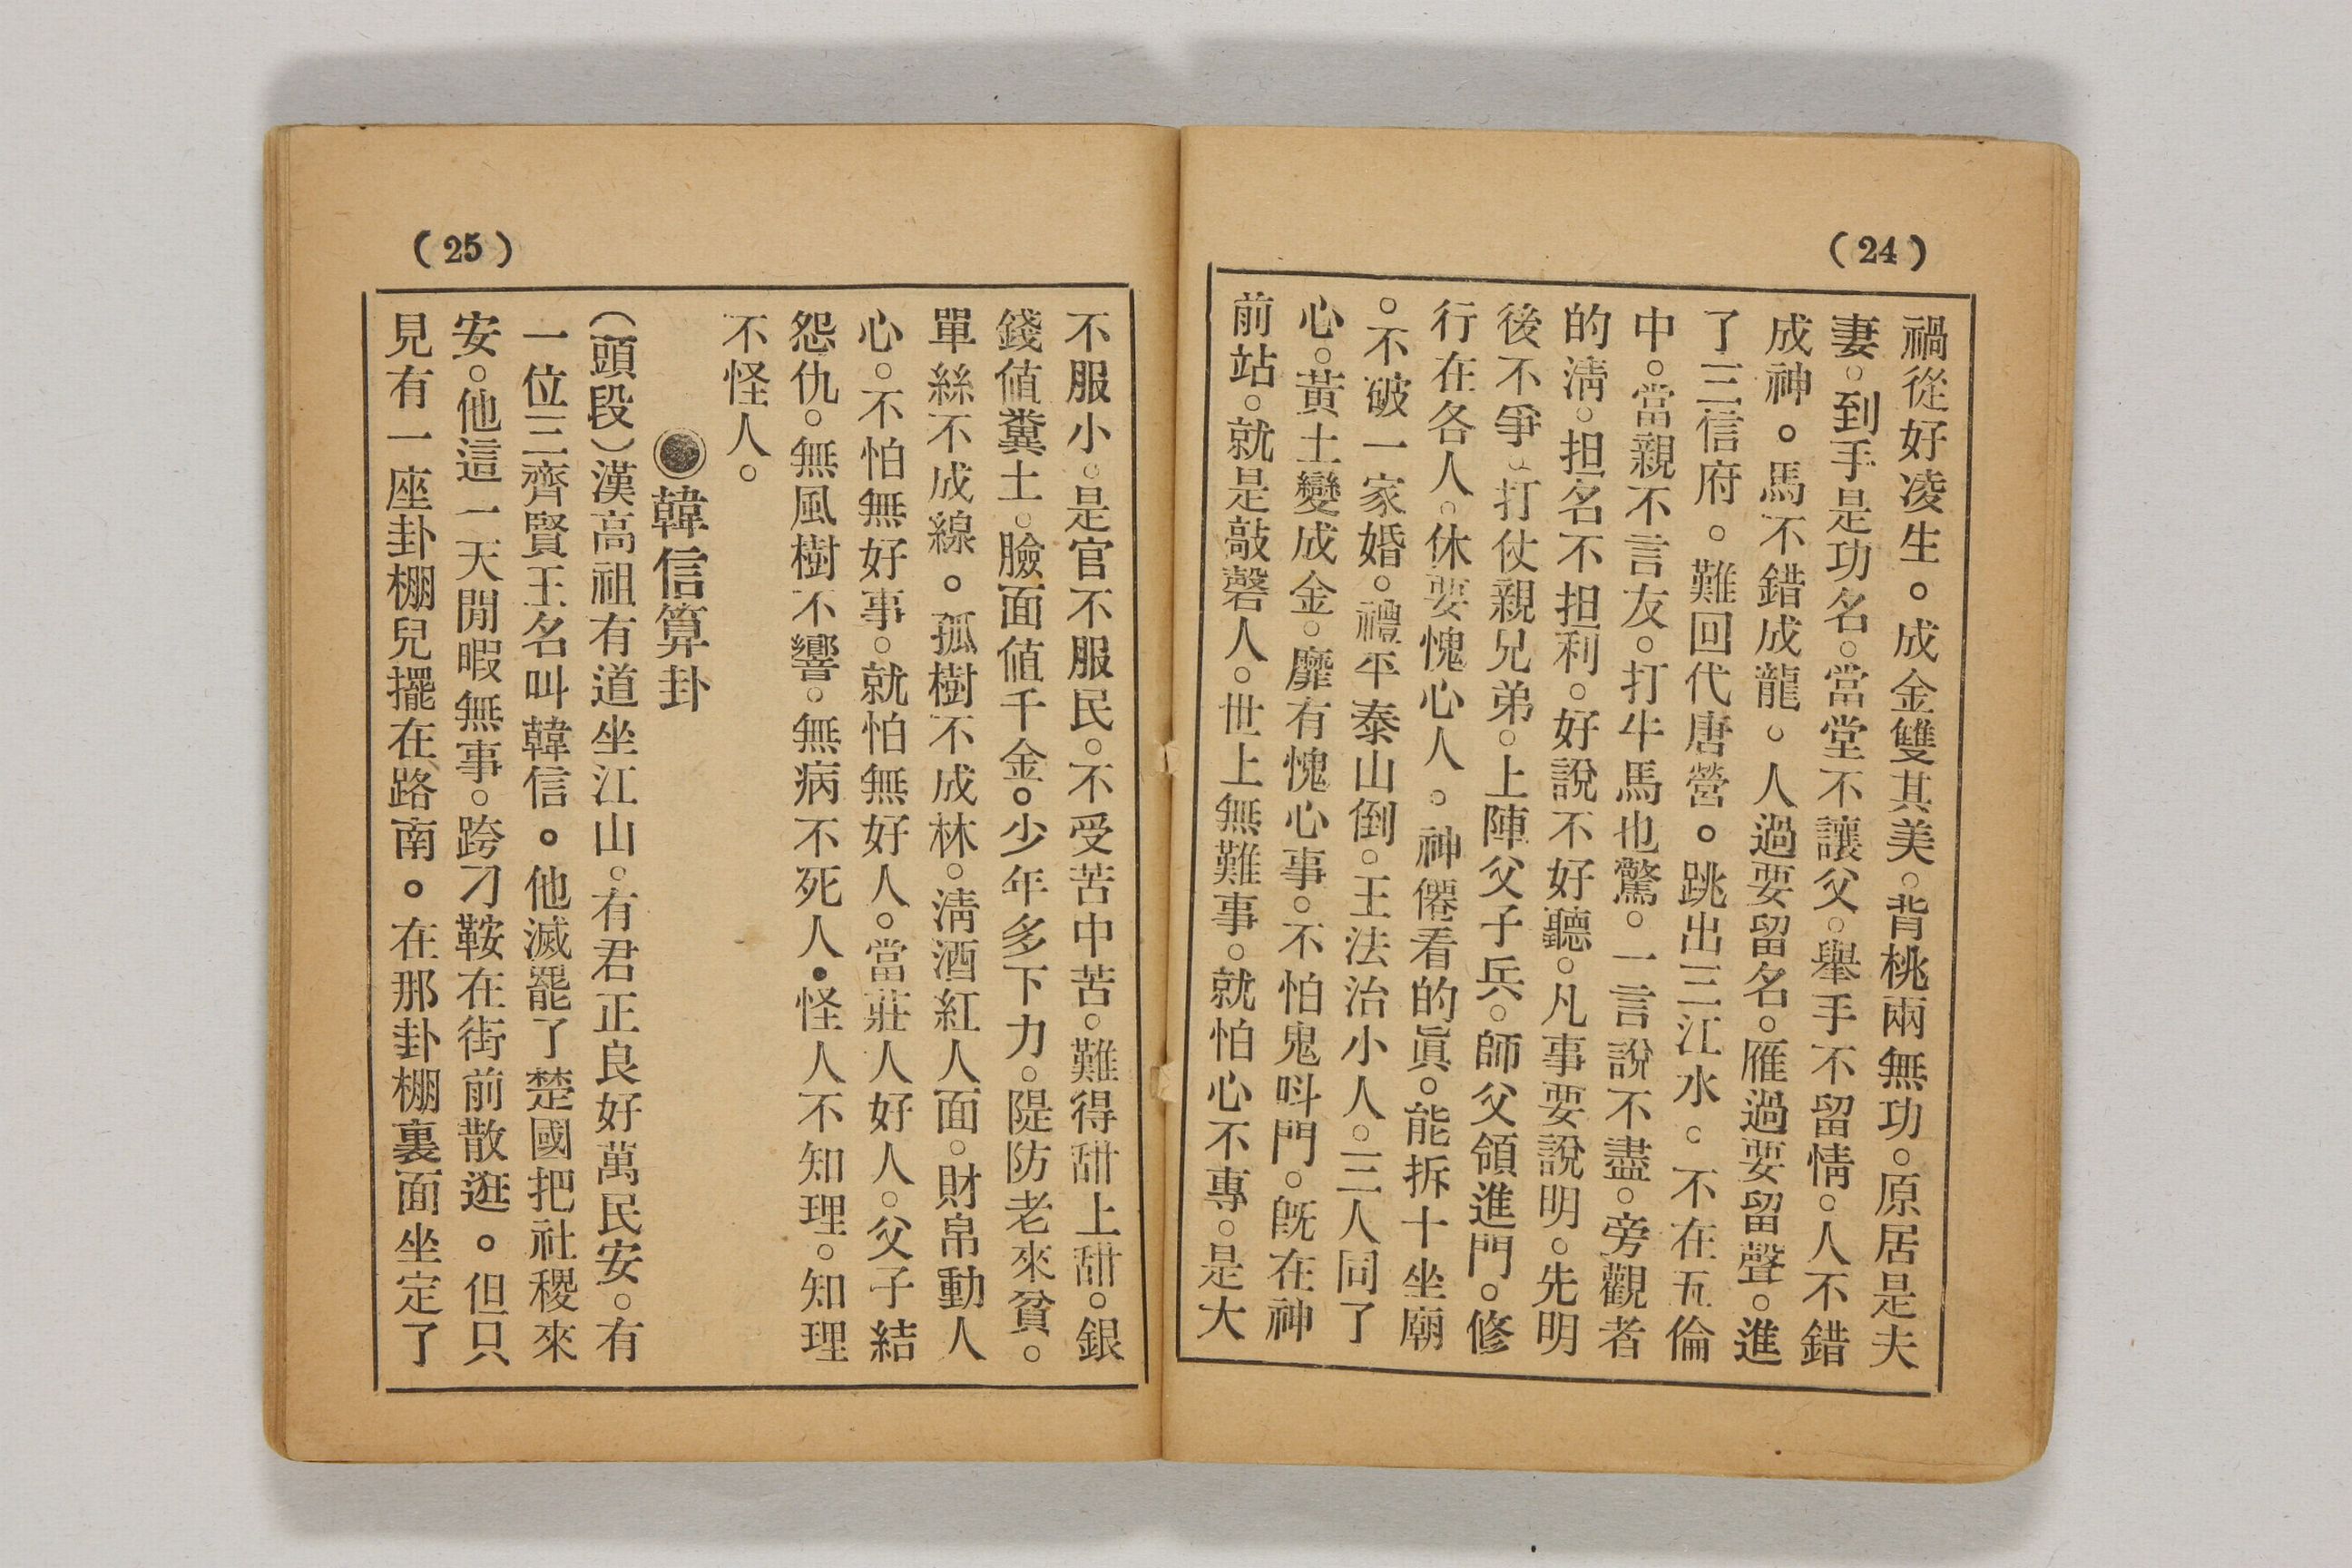 (24)
禍從好凌生。成金雙其美。背桃兩無功。原居是夫
妻。到手是功名。當堂不讓父。舉手不留情。人不錯
成神。馬不錯成龍。人過要留名。雁過要留聲。進
了三信府。難回代唐營。跳出三江水。不在五倫
中。當親不言友。打牛馬也驚。一言說不盡。旁觀者
的淸。担名不担利。好說不好聽。凡事要說明。先明
後不爭。打仗親兄弟。上陣父子兵。師父領進門。修
行在各人。休要愧心人。神僊看的眞。能拆十坐廟
。不破一家婚。禮平泰山倒。王法治小人。三人同了
心。黃土變成金。靡有愧心事。不怕鬼呌門。旣在神
前站。就是敲磬人。世上無難事。就怕心不專。是大
(25)
不服小。是官不服民。不受苦中苦。難得甜上甜。銀
錢値糞土。臉面値千金。少年多下力。隄防老來貧。
單絲不成線。孤樹不成林。淸酒紅人面。財帛動人
心。不怕無好事。就怕無好人。當莊人好人。父子結
怨仇。無風樹不響。無病不死人。怪人不知理。知理
不怪人。
●韓信算卦
（頭段）漢高祖有道坐江山。有君正良好萬民安。有
一位三齊賢王名叫韓信。他滅罷了楚國把社稷來
安。他這一天閒暇無事。跨刁鞍在街前散逛。但只
見有一座卦棚兒擺在路南。在那卦棚裏面坐定了